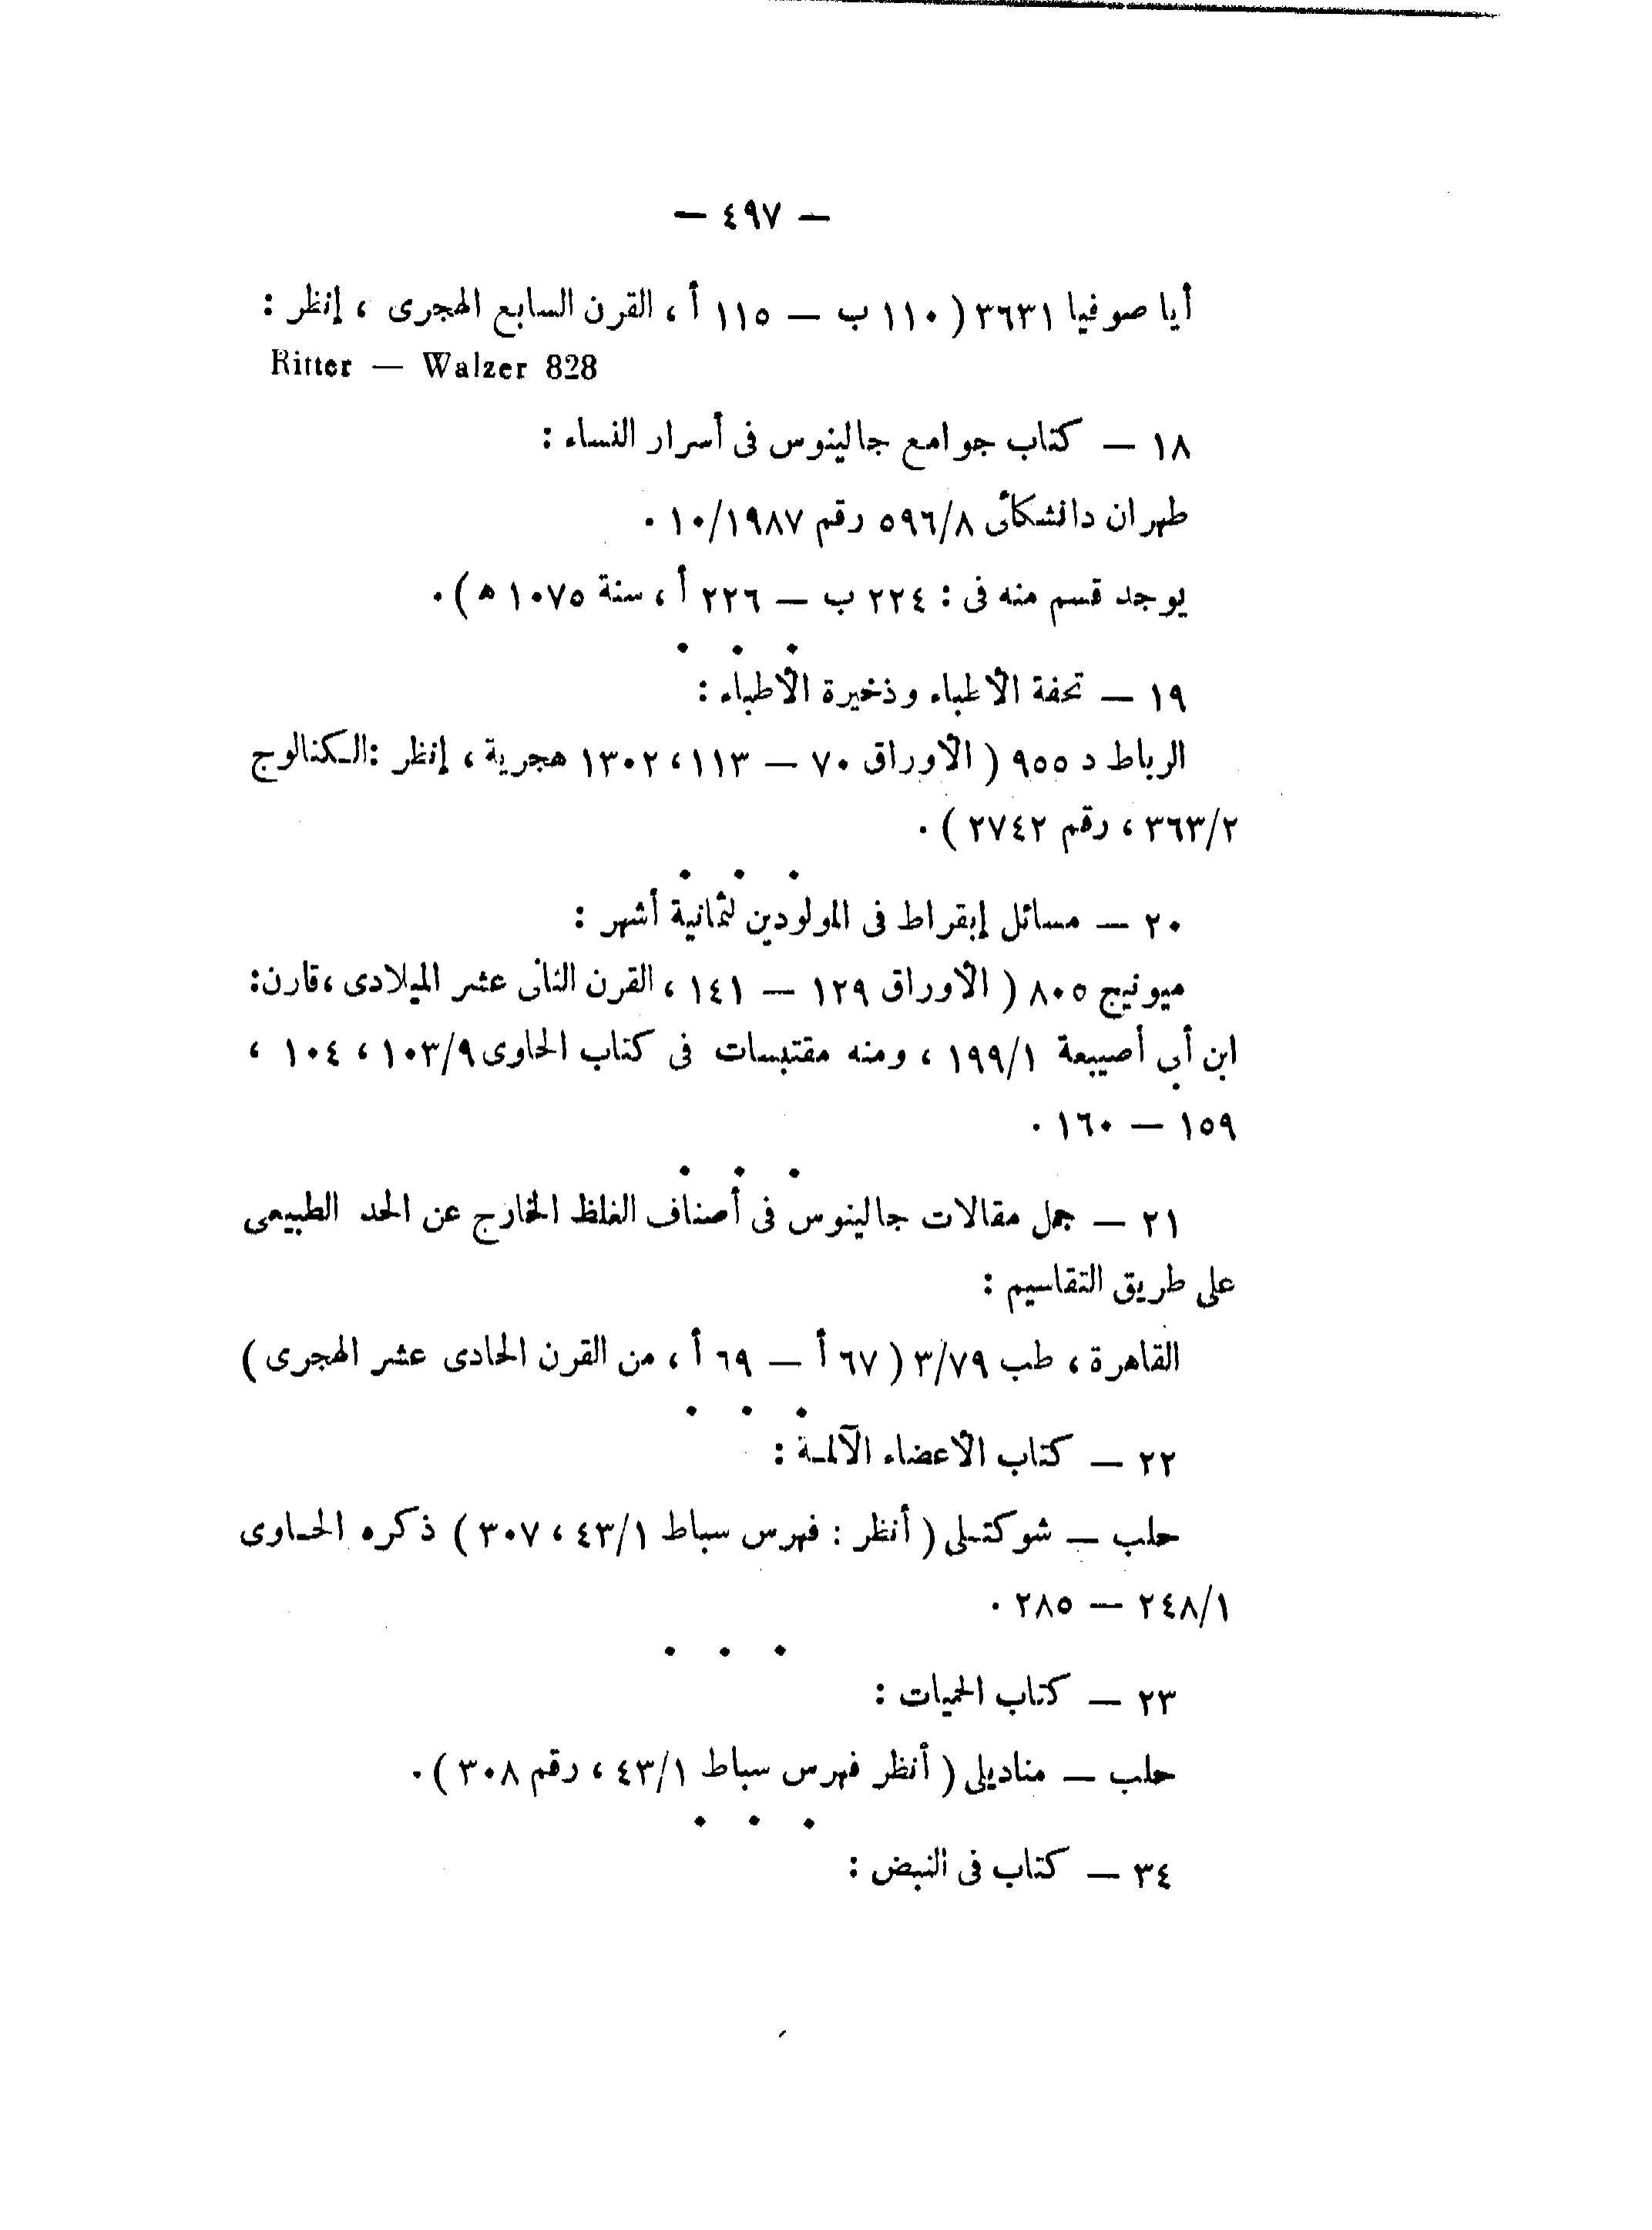 — ٤٩٧ —
أيا صوفيا ٣٦٣١ ( ١١٠ ب — ١١٥ أ ، القرن السابع الهجرى ، إنظر :
Ritter — Walzer 828
١٨ — كتاب جوامع جالينوس فى أسرار النساء :
طهران دانشكائى ٥٩٦/٨ رقم ١٠/١٩٨٧ .
يوجد قسم منه فى : ٢٢٤ ب — ٢٢٦ أ ، سنة ١٠٧٥ ه ) .
. . .
١٩ — تحفة الأطباء وذخيرة الأطباء :
الرباط د ٩٥٥ ( الأوراق ٧٠ — ١١٣ ، ١٣٠٢ هجرية ، إنظر : الكتالوج
٣٦٣/٢ ، رقم ٢٧٤٢ ) .
. . .
٢٠ — مسائل إبقراط فى المولودين لثمانية أشهر :
ميونيج ٨٠٥ ( الأوراق ١٢٩ — ١٤١ ، القرن الثانى عشر الميلادى ، قارن :
ابن أبي أصيبعة ١٩٩/١ ، ومنه مقتبسات فى كتاب الحاوى ١٠٣/٩ ، ١٠٤ ،
١٥٩ — ١٦٠ .
. . .
٢١ — جمل مقالات جالينوس فى أصناف الغلظ الخارج عن الحد الطبيعى
على طريق التقاسيم :
القاهرة ، طب ٣/٧٩ ( ٦٧ أ — ٦٩ أ ، من القرن الحادى عشر الهجرى )
. . .
٢٢ — كتاب الأعضاء الآلمـة :
حلب — شوكتـلى ( أنظر : فهرس سباط ٤٣/١ ، ٣٠٧ ) ذكره الحـاوى
٢٤٨/١ — ٢٨٥ .
. . .
٢٣ — كتاب الحميات :
حلب — مناديلى ( أنظر فهرس سباط ٤٣/١ ، رقم ٣٠٨ ) .
. . .
٣٤ — كتاب فى النبض :